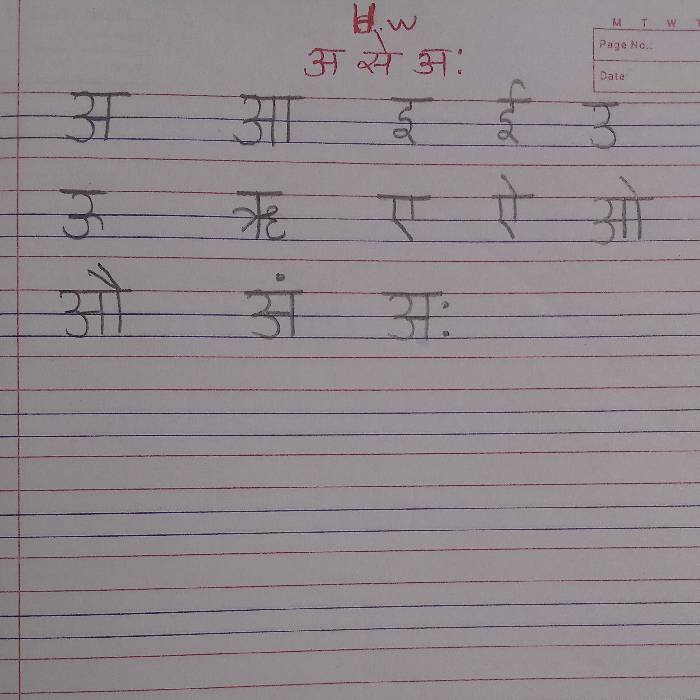 H.w
अ से अः
M T W T
Page No.:
Date:
अ आ इ ई उ
ऊ ऋ ए ऐ ओ
औ अं अः